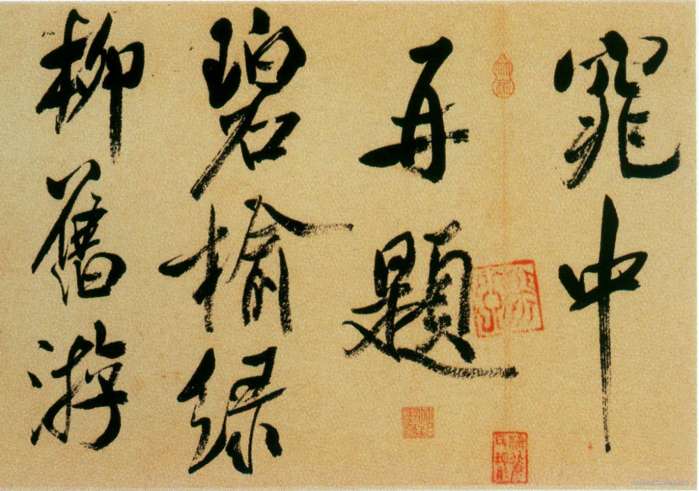 窕中
再題
碧榆緑
柳舊游